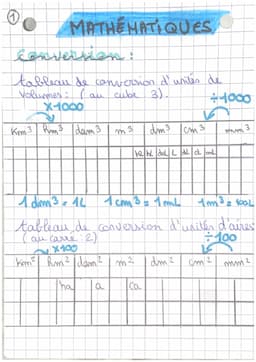 1
MATHÉMATIQUES
Conversion :
tableau de conversion d'unités de
volumes : (au cube 3).
x1000
÷1000
Km³ hm³ dam³ m³ dm³ cm³ mm³
kL hL daL L dL cL mL
1 dm³ = 1L 1 cm³ = 1mL 1m³ = 1000L
tableau de conversion d'unités d'aires
(au carré : 2)
x100
÷100
Km² hm² dam² m² dm² cm² mm²
ha a ca